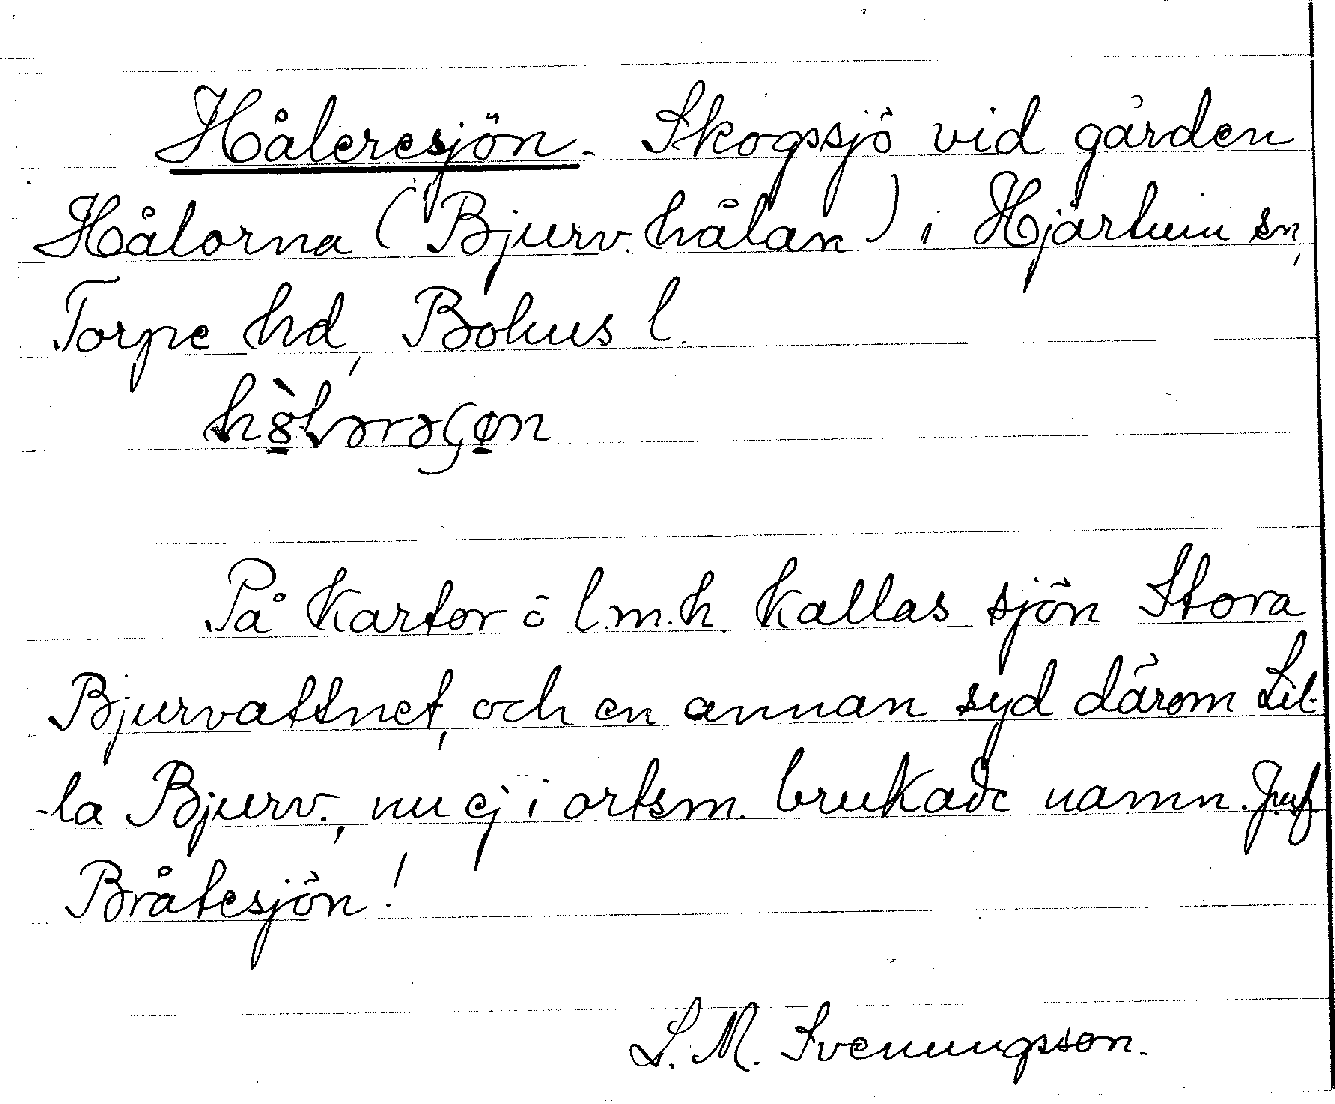 Håleresjön. Skogssjö vid gården
Hålorna (Bjurv. hålan) i Hjärtum sn,
Torpe hd, Bohus l.
På kartor o l.m.h. kallas sjön Stora
Bjurvattnet, och en annan syd därom Lil-
-la Bjurv., nu ej i ortsm. brukade namn. Jmf
Bråtesjön!
L. M. Svenungsson.